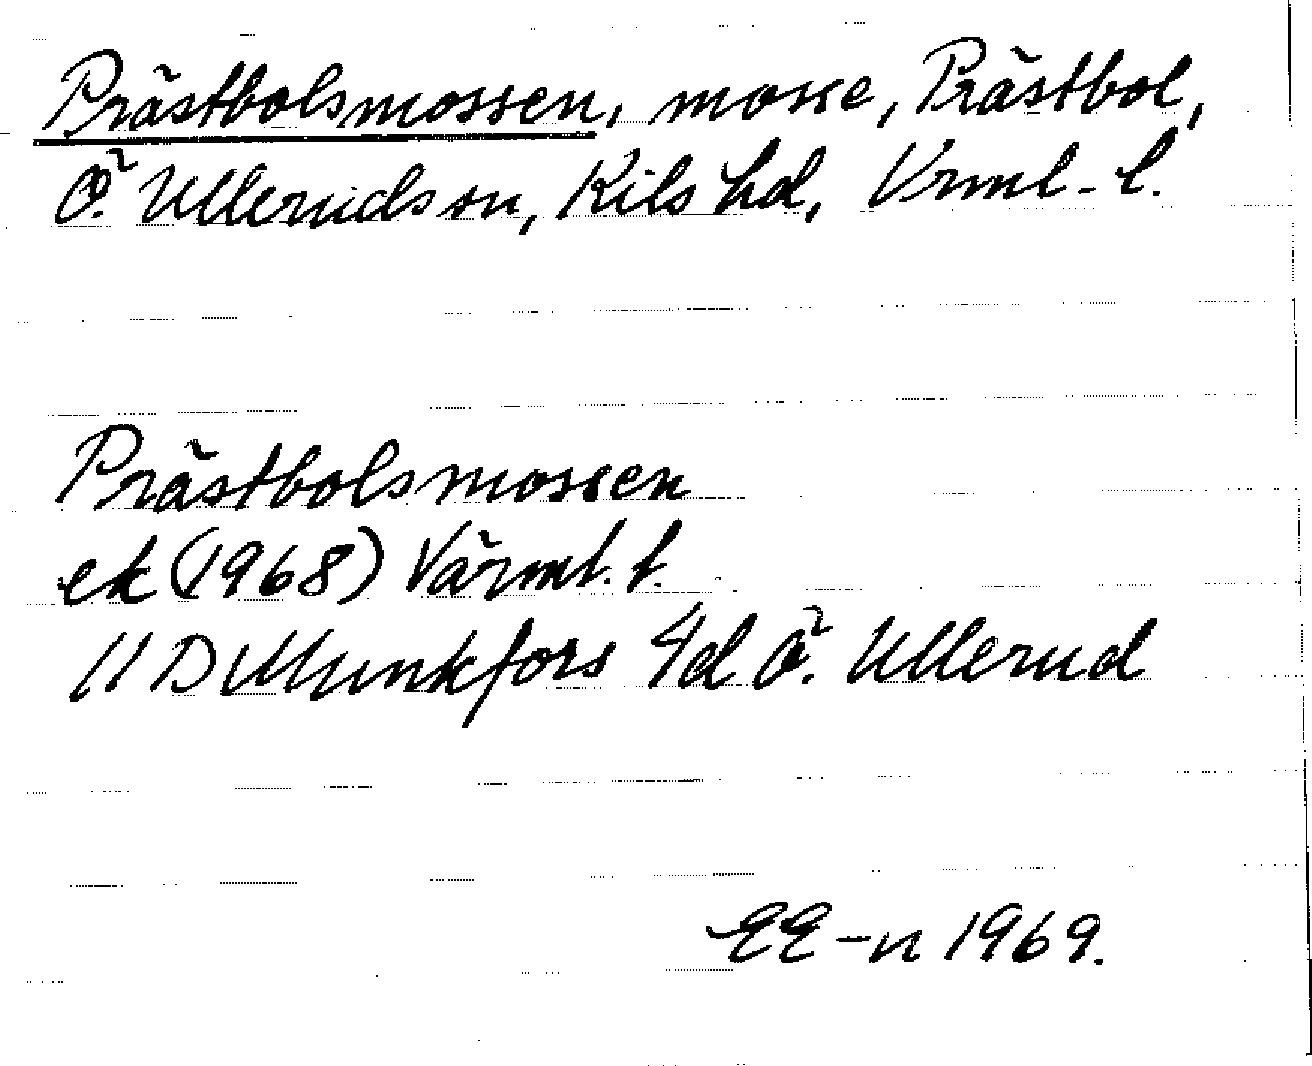 Prästbolsmossen, mosse, Prästbol,
Ö. Ulleruds sn, Kils hd, Vrml. l.
Prästbolsmossen
ek (1968) Värml. l.
11 D Munkfors 4d Ö. Ullerud
EE-n 1969.